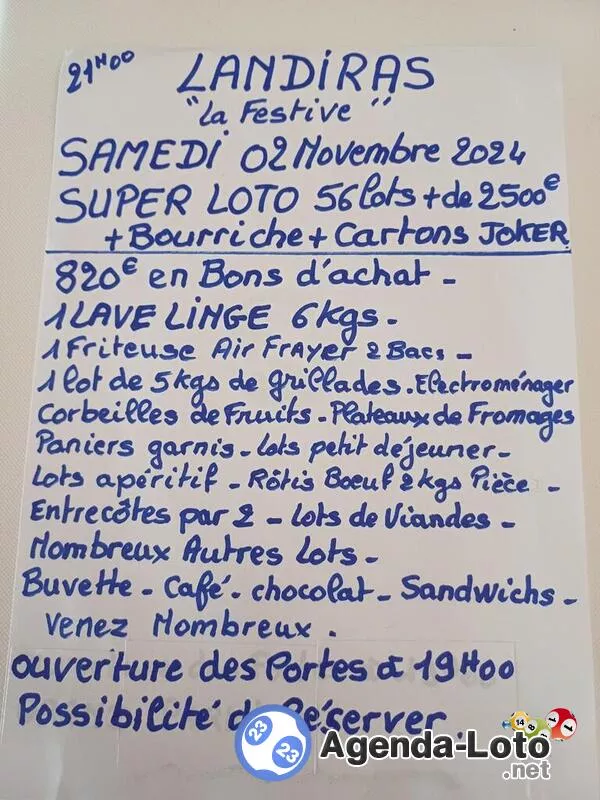 21H00
LANDIRAS
"La Festive"
SAMEDI 02 Novembre 2024
SUPER LOTO 56 lots + de 2500€
+ Bourriche + Cartons JOKER
820€ en Bons d'achat -
1 LAVE LINGE 6kgs -
1 Friteuse Air Frayer 2 Bacs -
1 lot de 5kgs de grillades. Electroménager
Corbeilles de Fruits - Plateaux de Fromages
Paniers garnis - Lots petit déjeuner -
Lots apéritif - Rôtis Boeuf 2kgs Pièce -
Entrecôtes par 2 - lots de Viandes -
Nombreux Autres Lots -
Buvette - Café - chocolat - Sandwichs -
Venez Nombreux.
ouverture des Portes à 19H00
Possibilité de Réserver.
23
23
Agenda-Loto
.net
14
8
1
1